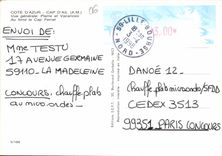 COTE D'AZUR - CAP D'AIL (A.M.)
Vue générale, Plaine et Vacances
Au fond le Cap Ferrat
ENVOI DE:
Mme TESTU
17 AVENUE GERMAINE
59110 - LA MADELEINE
CONCOURS: chauffe plat
au micro-ondes
59 LILLE
NORD
3,00*
DANOÉ 12
chauffe plat microondes/SP215
CEDEX 3513
99351 PARIS CONCOURS